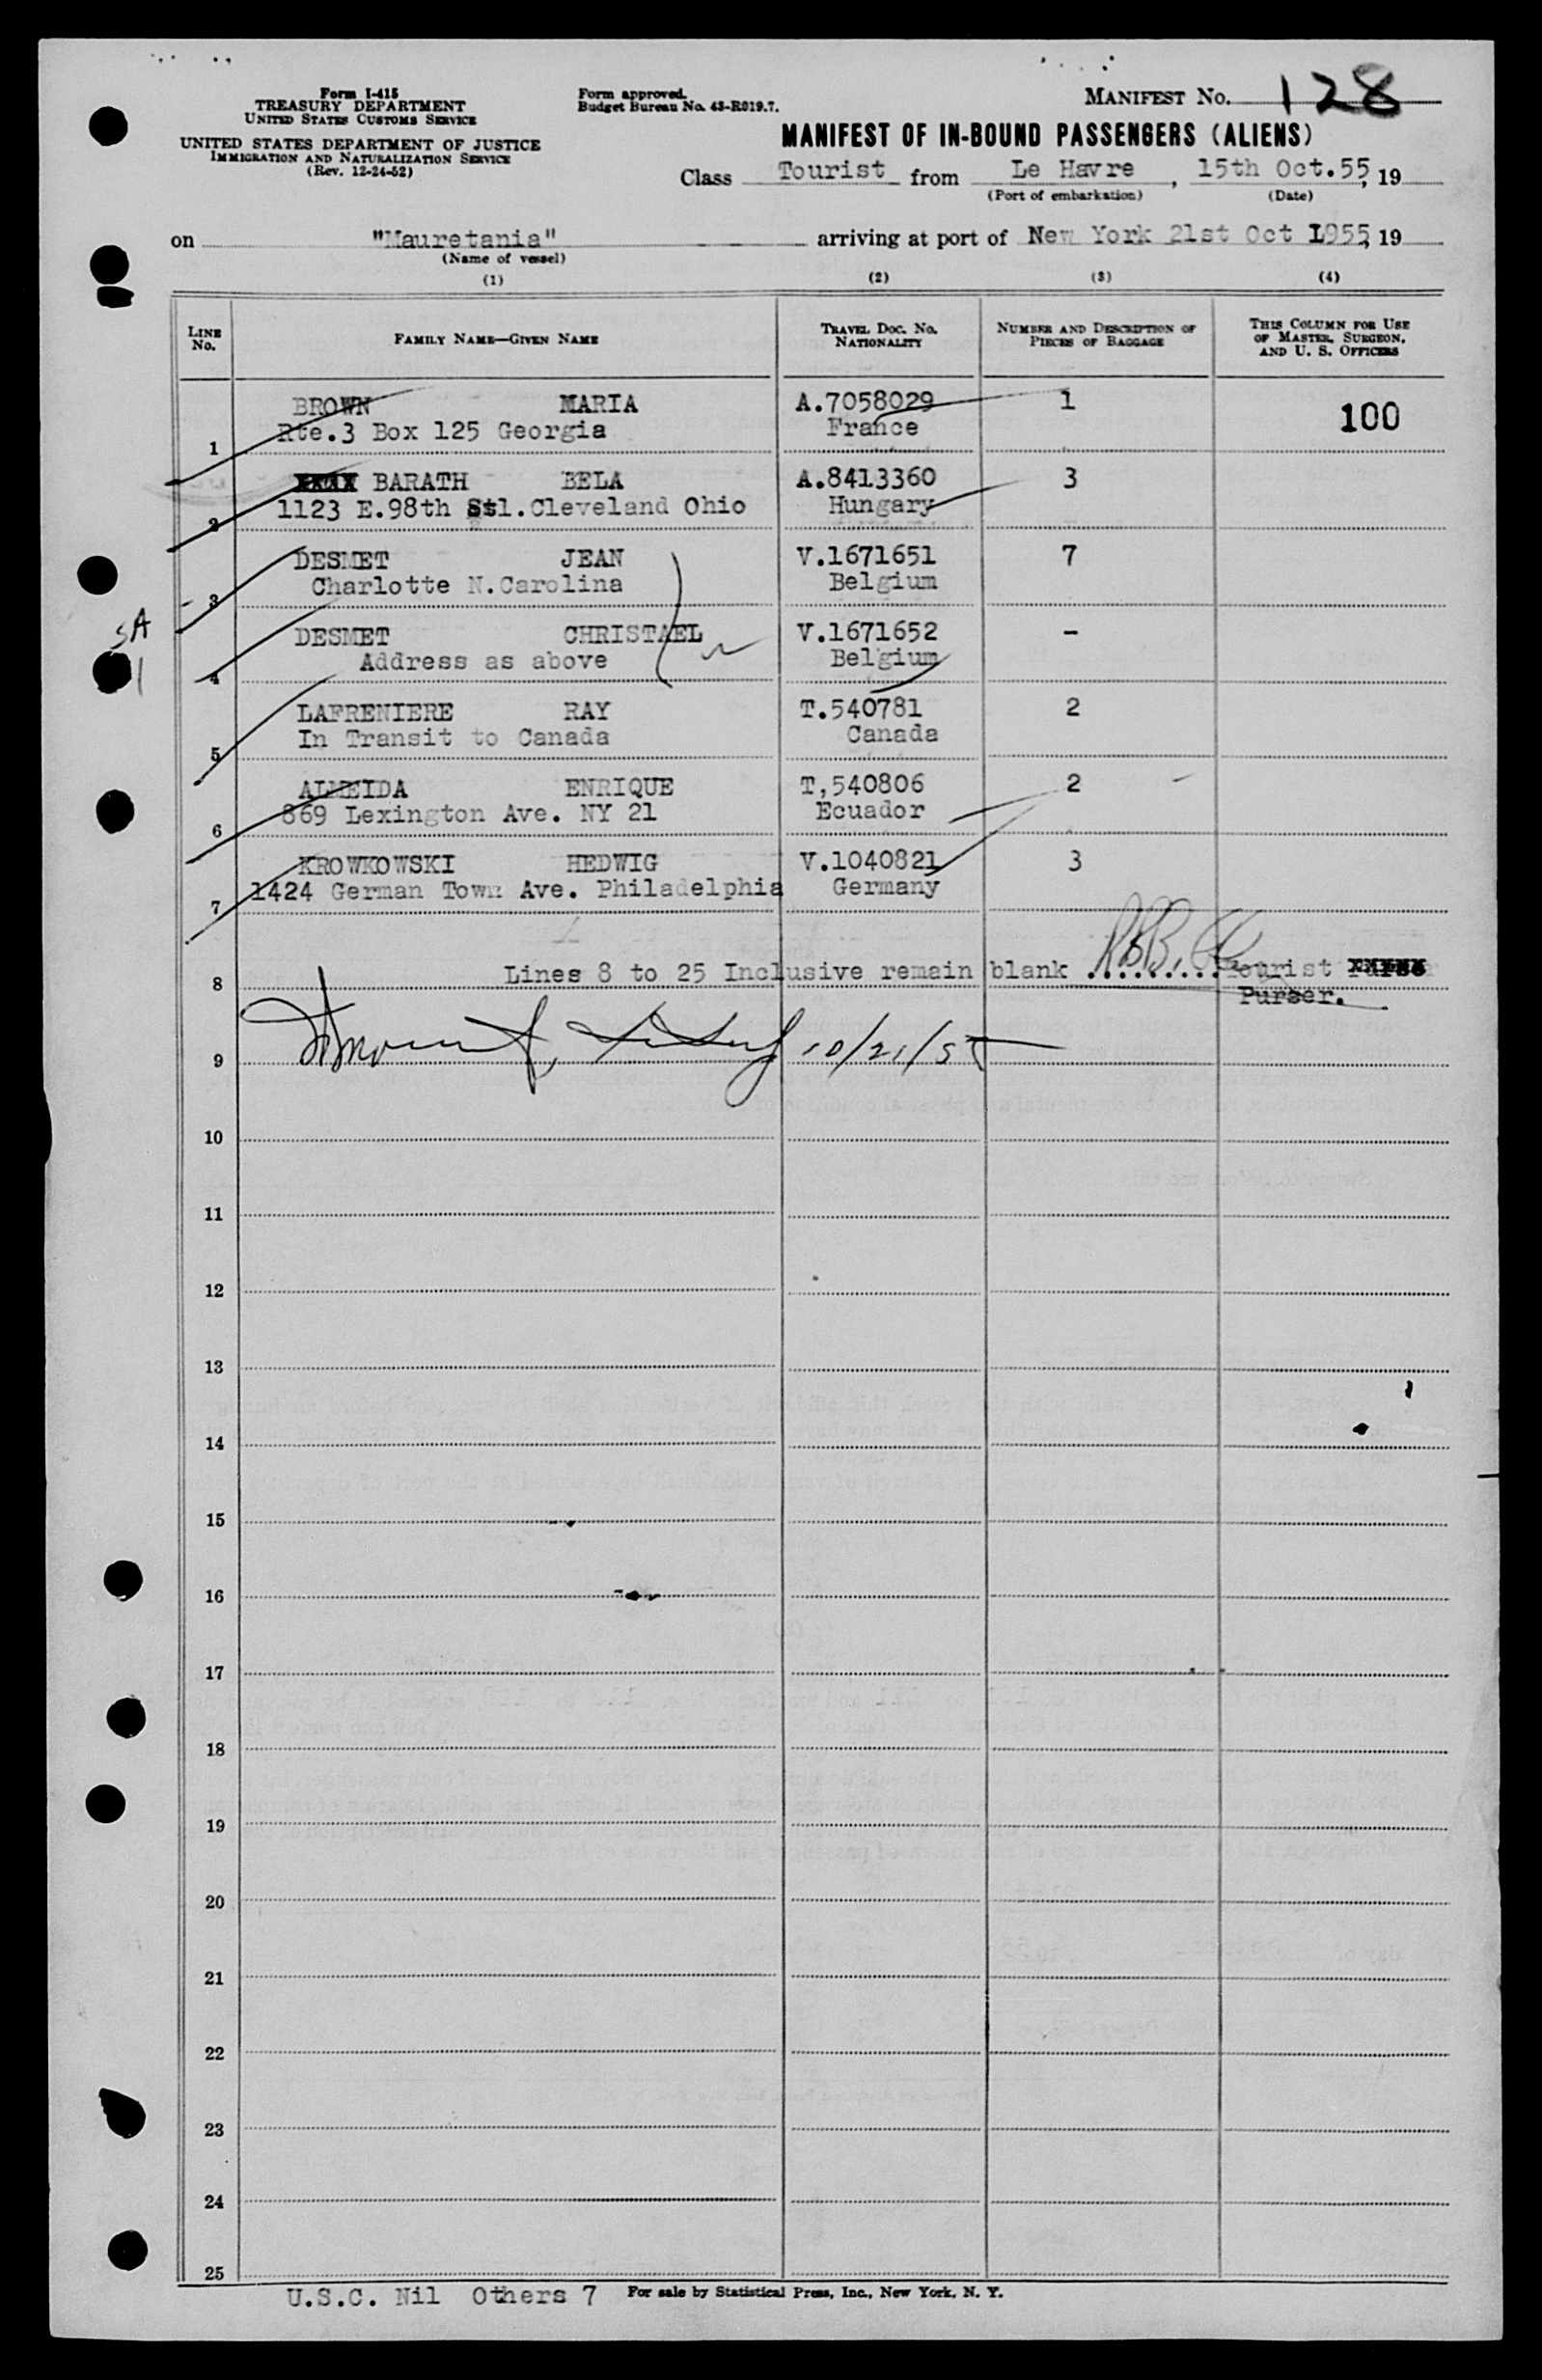 Form I-415
TREASURY DEPARTMENT
UNITED STATES CUSTOMS SERVICE
UNITED STATES DEPARTMENT OF JUSTICE
IMMIGRATION AND NATURALIZATION SERVICE
(Rev. 12-24-52)
Form approved.
Budget Bureau No. 43-R019.7.
MANIFEST No. 128
MANIFEST OF IN-BOUND PASSENGERS (ALIENS)
Class Tourist from Le Havre, 15th Oct.55, 19
(Port of embarkation) (Date)
on "Mauretania" arriving at port of New York 21st Oct 1955, 19
(Name of vessel)
(1) (2) (3) (4)
LINE No. FAMILY NAME—GIVEN NAME TRAVEL DOC. NO. NATIONALITY NUMBER AND DESCRIPTION OF PIECES OF BAGGAGE THIS COLUMN FOR USE OF MASTER, SURGEON, AND U. S. OFFICERS
BROWN MARIA A.7058029 1 100
1 Rte.3 Box 125 Georgia France
BARATH BELA A.8413360 3
2 1123 E.98th Stl.Cleveland Ohio Hungary
DESMET JEAN V.1671651 7
3 Charlotte N.Carolina Belgium
SA
DESMET CHRISTAEL V.1671652 -
4 Address as above Belgium
1
LAFRENIERE RAY T.540781 2
5 In Transit to Canada Canada
ALMEIDA ENRIQUE T,540806 2
6 869 Lexington Ave. NY 21 Ecuador
KROWKOWSKI HEDWIG V.1040821 3
7 1424 German Town Ave. Philadelphia Germany
8 Lines 8 to 25 Inclusive remain blank .......... Tourist
Purser.
9 10/21/55
10
11
12
13
14
15
16
17
18
19
20
21
22
23
24
25
U.S.C. Nil Others 7 For sale by Statistical Press, Inc., New York, N. Y.